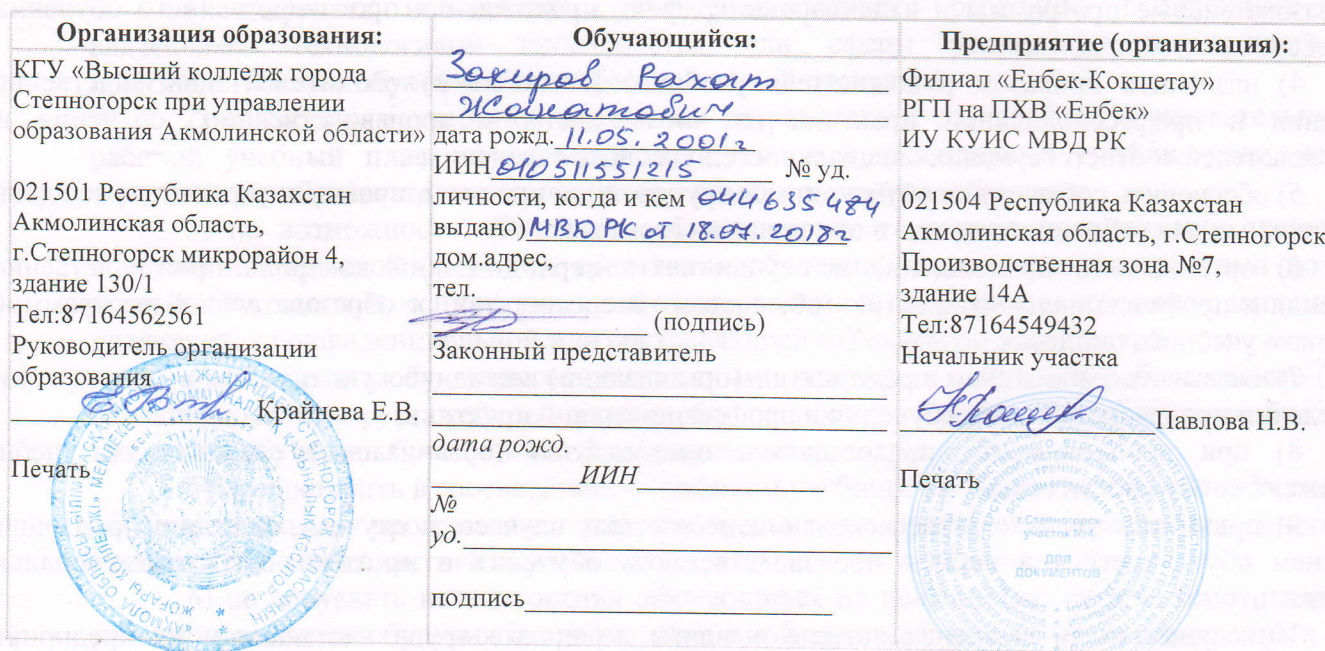 Организация образования:
КГУ «Высший колледж города
Степногорск при управлении
образования Акмолинской области»
021501 Республика Казахстан
Акмолинская область,
г.Степногорск микрорайон 4,
здание 130/1
Тел:87164562561
Руководитель организации
образования
Крайнева Е.В.
Печать
Обучающийся:
Закиров Рахат
Жанатович
дата рожд. 11.05.2001г
ИИН 010511551215 № уд.
личности, когда и кем 044635484
выдано) МВД РК от 18.07.2018г
дом.адрес,
тел.
(подпись)
Законный представитель
дата рожд.
ИИН
№
уд.
подпись
Предприятие (организация):
Филиал «Енбек-Кокшетау»
РГП на ПХВ «Енбек»
ИУ КУИС МВД РК
021504 Республика Казахстан
Акмолинская область, г.Степногорск
Производственная зона №7,
здание 14А
Тел:87164549432
Начальник участка
Павлова Н.В.
Печать
Степногорск
участок №4
ДЛЯ
ДОКУМЕНТОВ